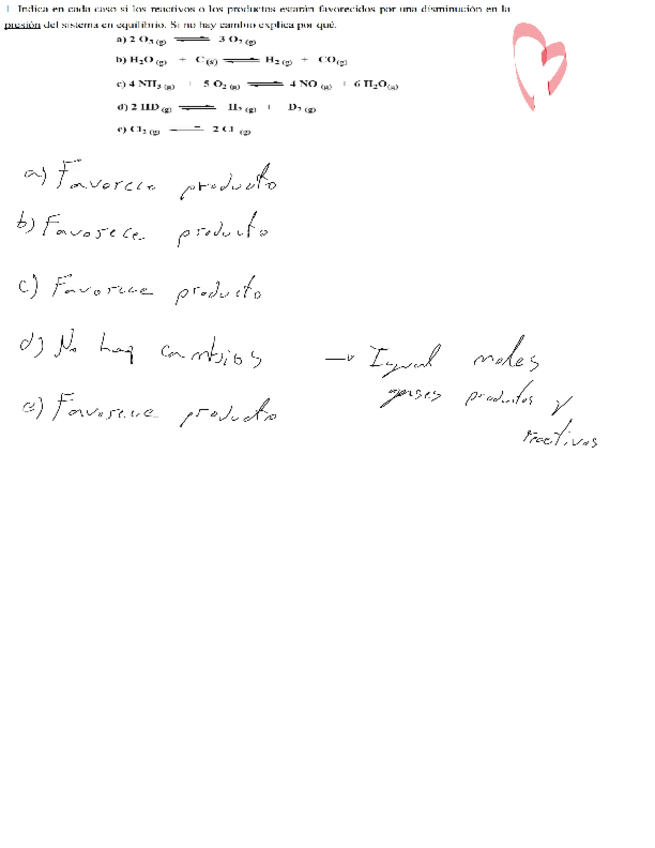 1 Indica en cada caso si los reactivos o los productos estarán favorecidos por una disminución en la
presión del sistema en equilibrio. Si no hay cambio explica por qué.
a) 2 O3 (g) ⇌ 3 O2 (g)
b) H2O (g) + C(s) ⇌ H2 (g) + CO(g)
c) 4 NH3 (g) + 5 O2 (g) ⇌ 4 NO (g) + 6 H2O(g)
d) 2 HD (g) ⇌ H2 (g) + D2 (g)
e) Cl2 (g) ⇌ 2 Cl (g)
a) Favorece producto
b) Favorece producto
c) Favorece producto
d) No hay cambios → Igual moles
gases productos y
reactivos
e) Favorece producto